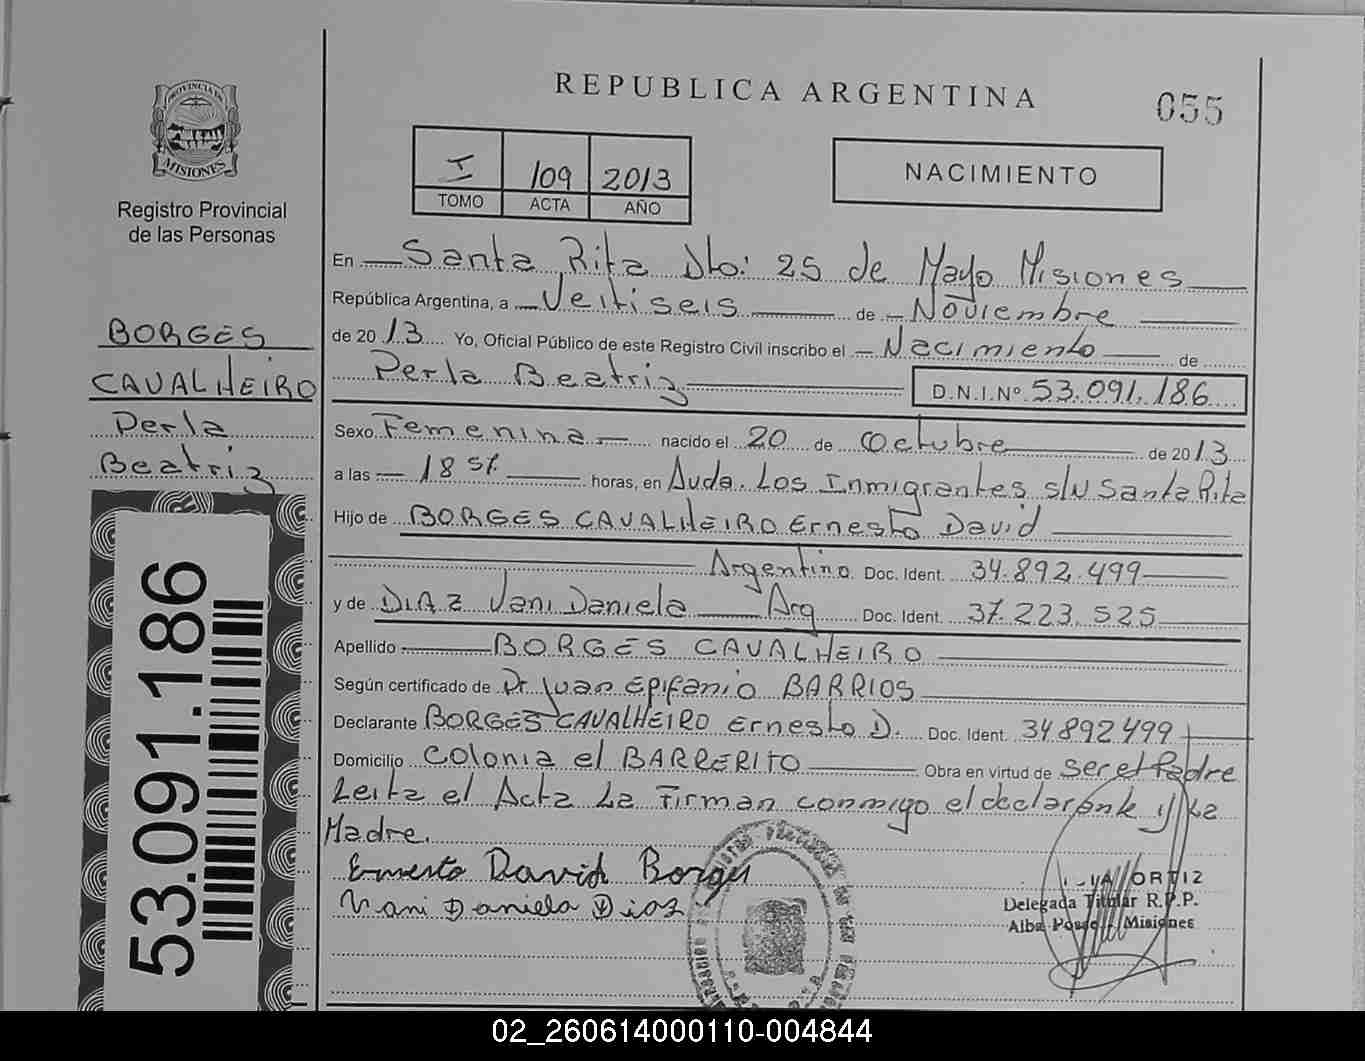 REPUBLICA ARGENTINA
055
PROVINCIA DE
MISIONES
Registro Provincial
de las Personas
I 109 2013
TOMO ACTA AÑO
NACIMIENTO
BORGES
CAVALHEIRO
Perla
Beatriz
53.091.186
En Santa Rita Dto: 25 de Mayo Misiones
República Argentina, a Veitiseis de Noviembre
de 2013 Yo, Oficial Público de este Registro Civil inscribo el Nacimiento de
Perla Beatriz D.N.I.Nº 53.091.186
Sexo Femenina nacido el 20 de Octubre de 2013
a las 18 horas, en Avda. Los Inmigrantes s/N Santa Rita
Hijo de BORGES CAVALHEIRO Ernesto David
Argentino Doc. Ident. 34.892.499
y de DIAZ Vani Daniela Arg Doc. Ident. 37.223.525
Apellido BORGES CAVALHEIRO
Según certificado de Dr Juan Epifanio BARRIOS
Declarante BORGES CAVALHEIRO Ernesto D. Doc. Ident. 34892499
Domicilio Colonia el BARRERITO Obra en virtud de ser el Padre
Leita el Acta La Firman conmigo el declarante y La
Madre.
Ernesto David Borges
Vani Daniela Diaz
ORTIZ
Delegada Titular R.P.P.
Alba Posse - Misiones
02_260614000110-004844